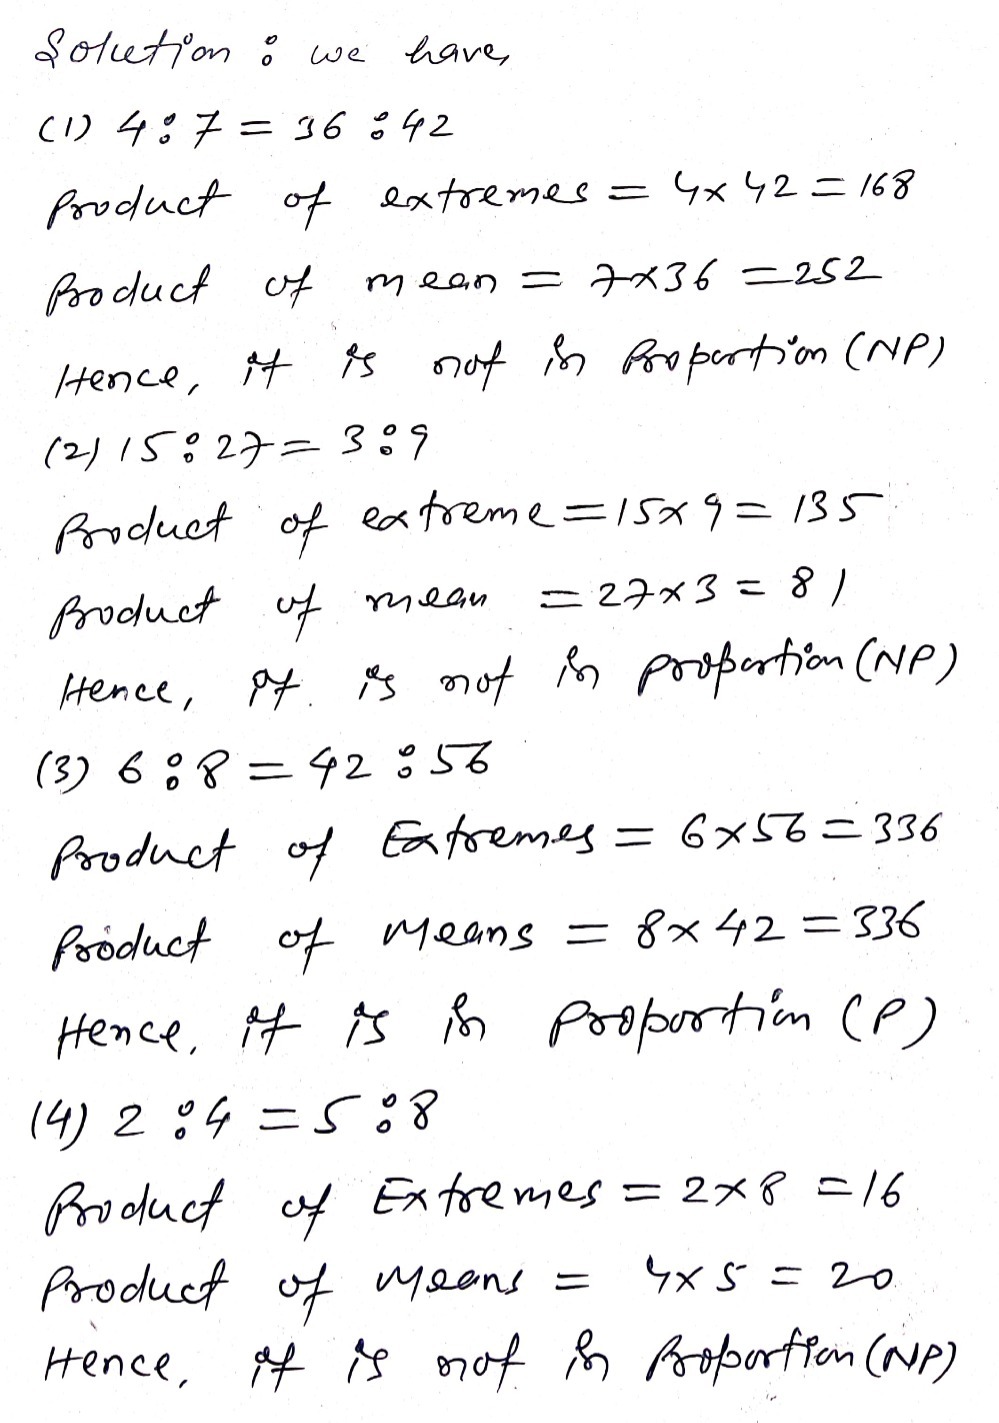 Solution : we have,
(1) 4 : 7 = 36 : 42
Product of extremes = 4 x 42 = 168
Product of mean = 7x36 = 252
Hence, it is not in Proportion (NP)
(2) 15 : 27 = 3 : 9
Product of extreme = 15x9 = 135
Product of mean = 27x3 = 81
Hence, it is not in proportion (NP)
(3) 6 : 8 = 42 : 56
Product of Extremes = 6x56 = 336
Product of Means = 8x42 = 336
Hence, it is in Proportion (P)
(4) 2 : 4 = 5 : 8
Product of Extremes = 2x8 = 16
Product of Means = 4x5 = 20
Hence, it is not in Proportion (NP)